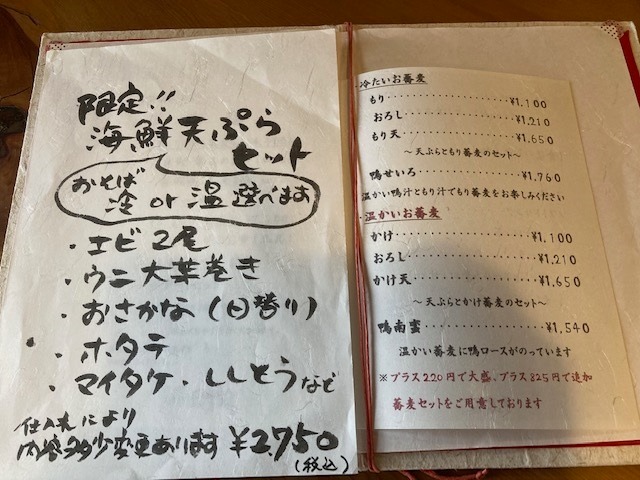 限定!!
海鮮天ぷら
セット
おそば
冷 or 温 選べます
・エビ2尾
・ウニ大葉巻き
・おさかな(日替り)
・ホタテ
・マイタケ・ししとうなど
仕入れにより
内容多少変更あります ¥2750
(税込)
冷たいお蕎麦
もり……………………¥1,100
おろし…………………¥1,210
もり天…………………¥1,650
～天ぷらともり蕎麦のセット～
鴨せいろ………………¥1,760
温かい鴨汁ともり汁でもり蕎麦をお楽しみください
温かいお蕎麦
かけ……………………¥1,100
おろし…………………¥1,210
かけ天…………………¥1,650
～天ぷらとかけ蕎麦のセット～
鴨南蛮…………………¥1,540
温かい蕎麦に鴨ロースがのっています
※プラス220円で大盛、プラス825円で追加
蕎麦セットをご用意しております